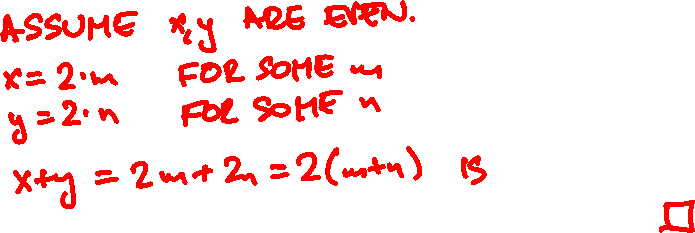 ASSUME x, y ARE EVEN.
x = 2·m FOR SOME m
y = 2·n FOR SOME n
x+y = 2m + 2n = 2(m+n) IS
□